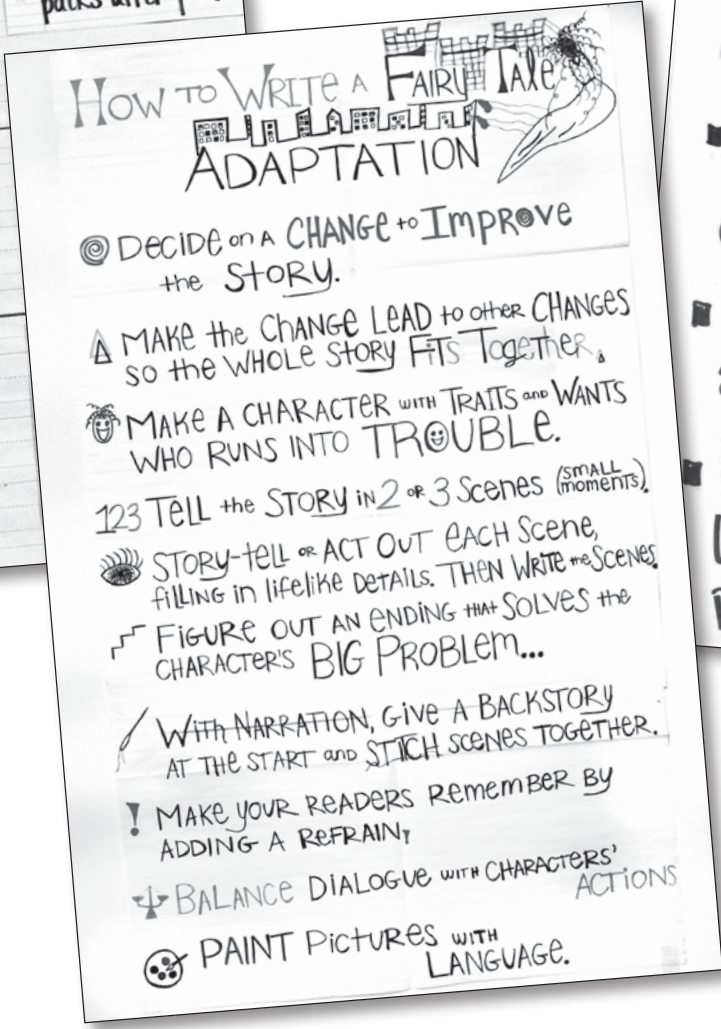 packs
How to Write a Fairy Tale
Adaptation
Decide on a CHANGE to Improve
the Story.
Make the Change Lead to other CHANGES
so the WHOLE Story Fits Together.
Make a Character with Traits and Wants
who runs into TROUBLE.
123 Tell the Story in 2 or 3 Scenes (small moments).
Story-tell or Act Out Each Scene,
filling in lifelike details. Then Write the Scenes.
Figure out an ending that solves the
character's BIG PROBLEM...
With Narration, Give a Backstory
at the start and stitch scenes together.
! Make your readers remember by
adding a refrain!
Balance Dialogue with Characters'
Actions
Paint Pictures with
Language.